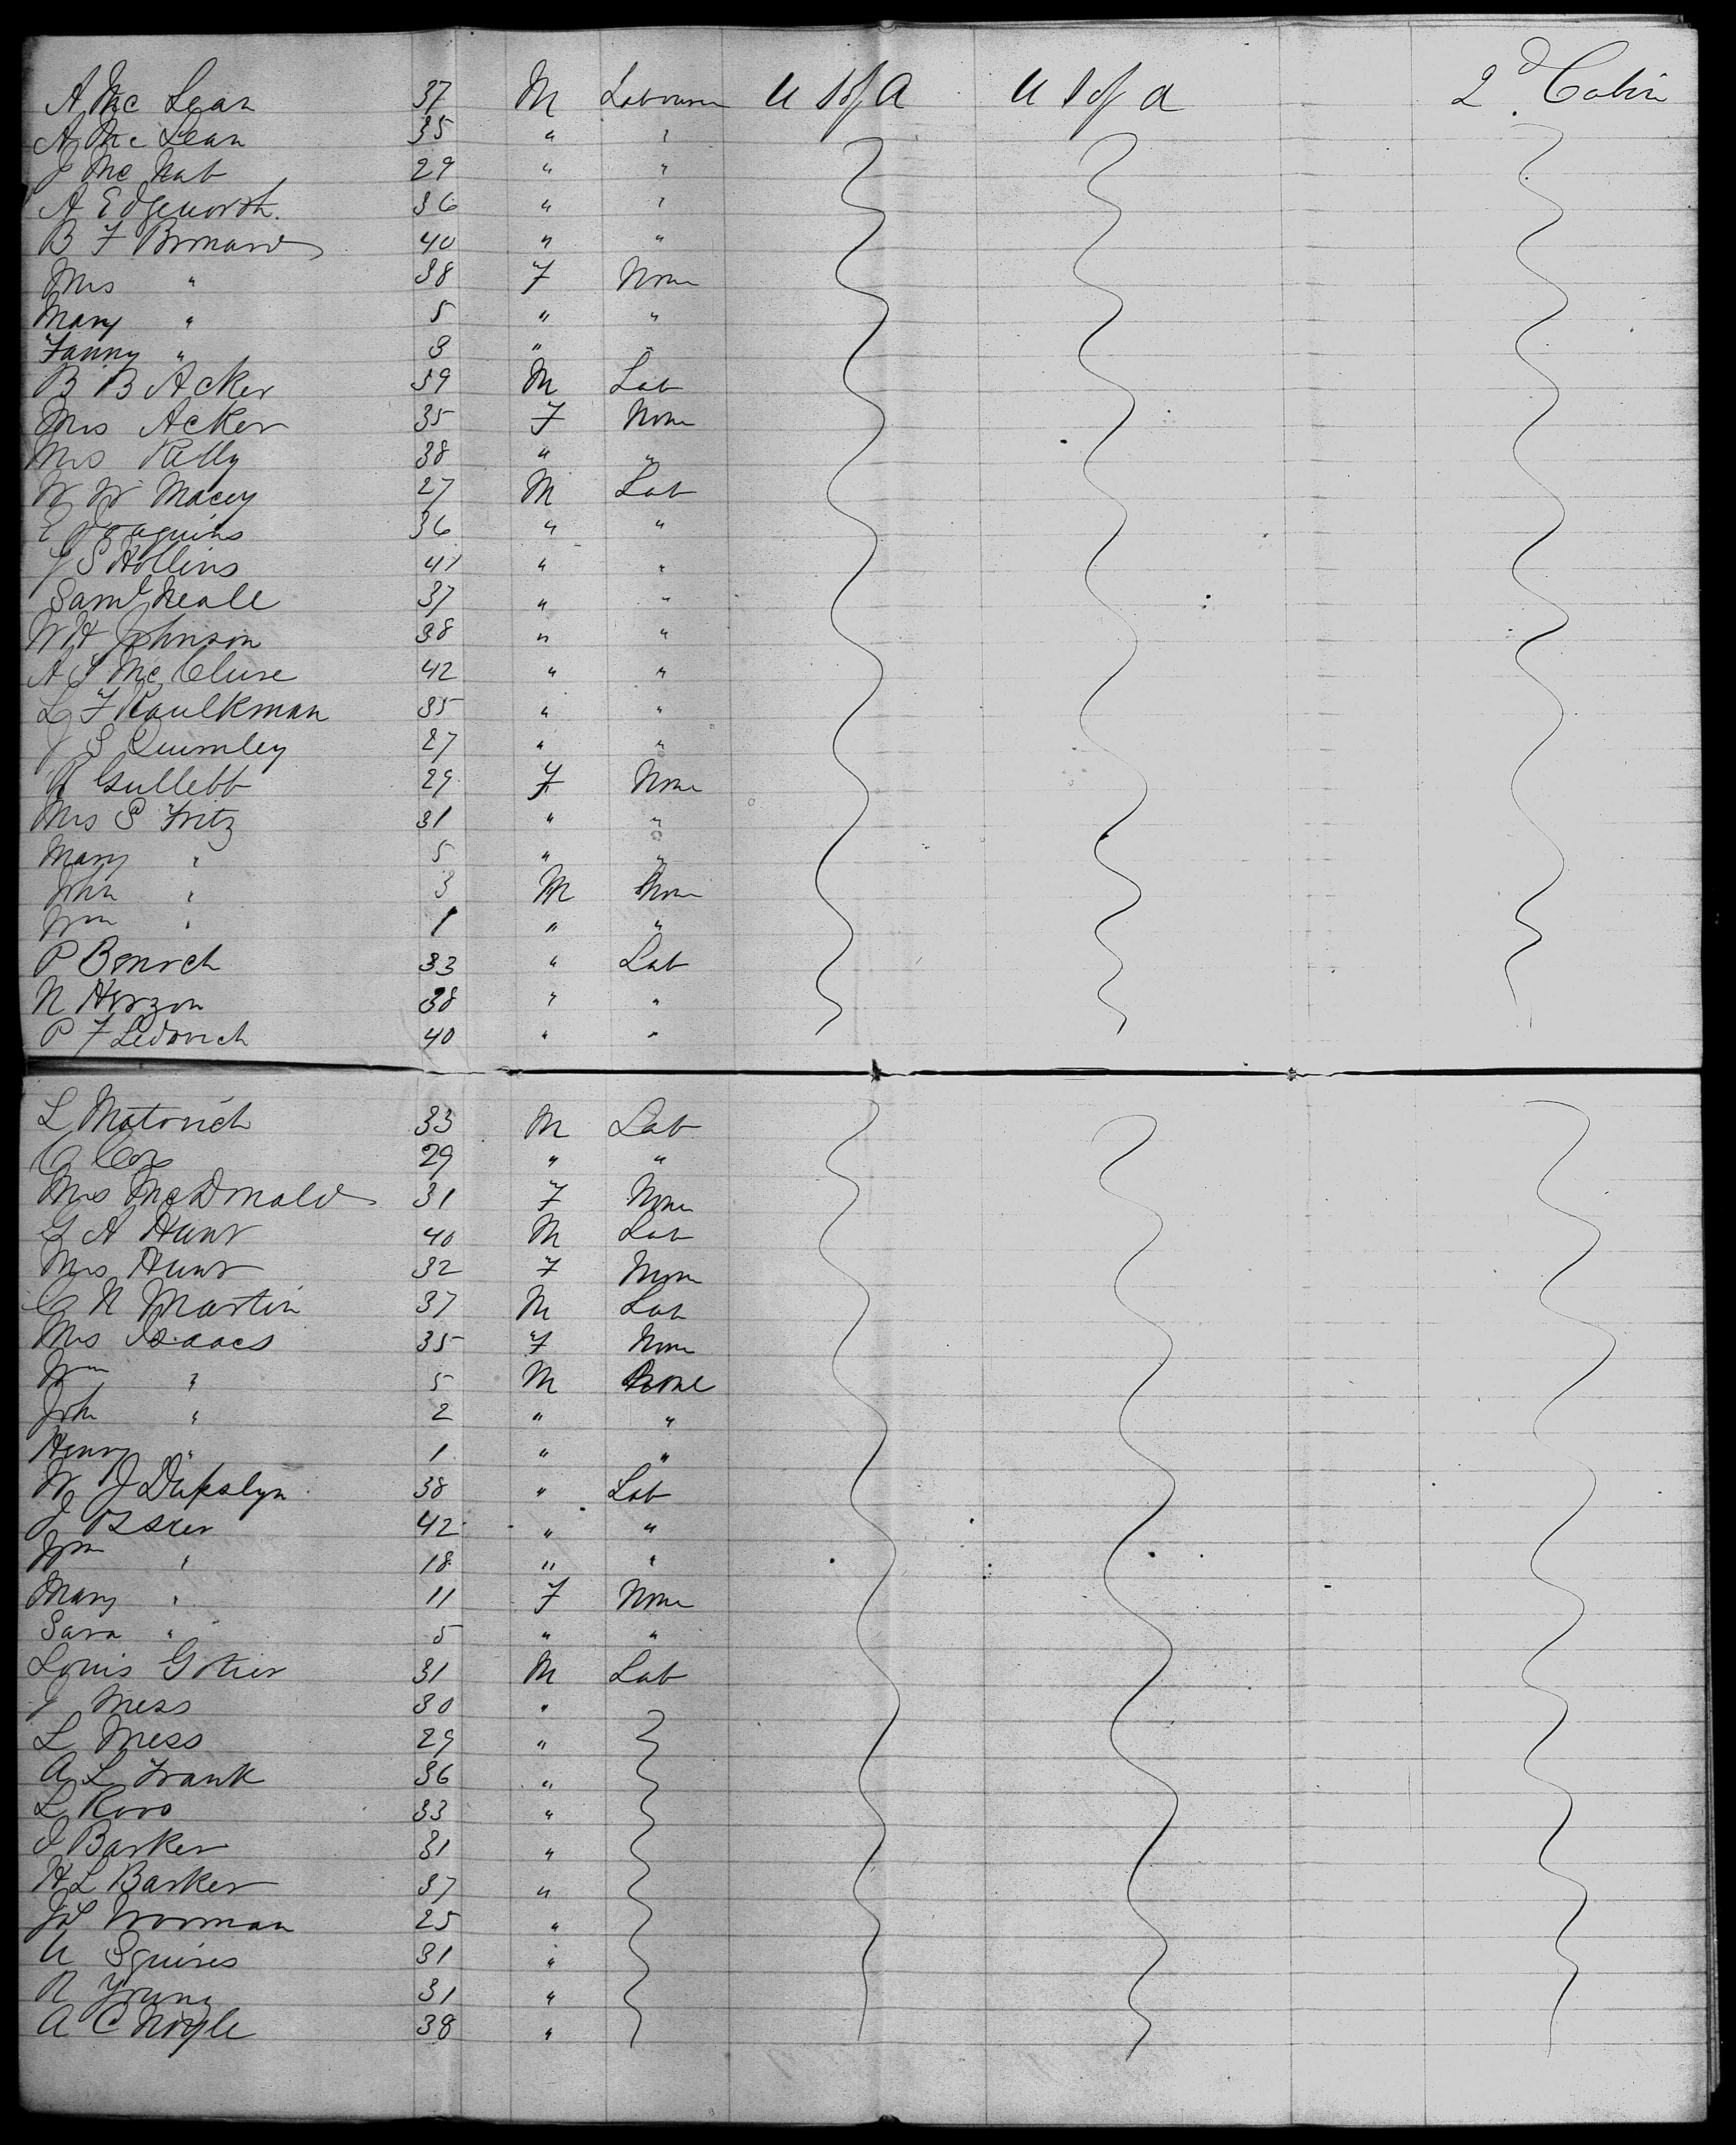 A Mc Lean 37 M Labourer U S of A U S of A 2d Cabin
A Mc Lean 35 " "
J Mc Nab 29 " "
A Edgeworth 36 " "
B F 40 " "
Mrs " 38 F None
Mary " 5 " "
Fanny " 3 " "
B B Acker 39 M Lab
Mrs Acker 35 F None
Mrs Kelly 38 " "
W W Macey 27 M Lab
E Joaquins 36 " "
J S Hollins 41 " "
Saml Neale 37 " "
W H Johnson 38 " "
A S Mc Clure 42 " "
L F Kaulkman 35 " "
J S Quimley 27 " "
Gullett 29 F None
Mrs S Fritz 31 " "
Mary " 5 " "
John " 3 M None
Wm " 1 " "
P 33 " Lab
N Herzon 38 " "
P F Ledovich 40 " "
L Matovich 33 M Lab
C Cox 29 " "
Mrs McDonald 31 F None
G A Hunt 40 M Lab
Mrs Hunt 32 F None
C N Martin 37 M Lab
Mrs Isaacs 35 F None
Wm " 5 M None
John " 2 " "
Henry " 1 " "
W J 38 " Lab
J 42 " "
Wm " 18 " "
Mary " 11 F None
Sara " 5 " "
Louis Gotier 31 M Lab
J Mess 30 "
L Mess 29 "
A L Frank 36 "
L Roos 33 "
J Barker 31 "
H L Barker 37 "
Worman 25 "
U Squires 31 "
R Young 31 "
A C Noyle 38 "